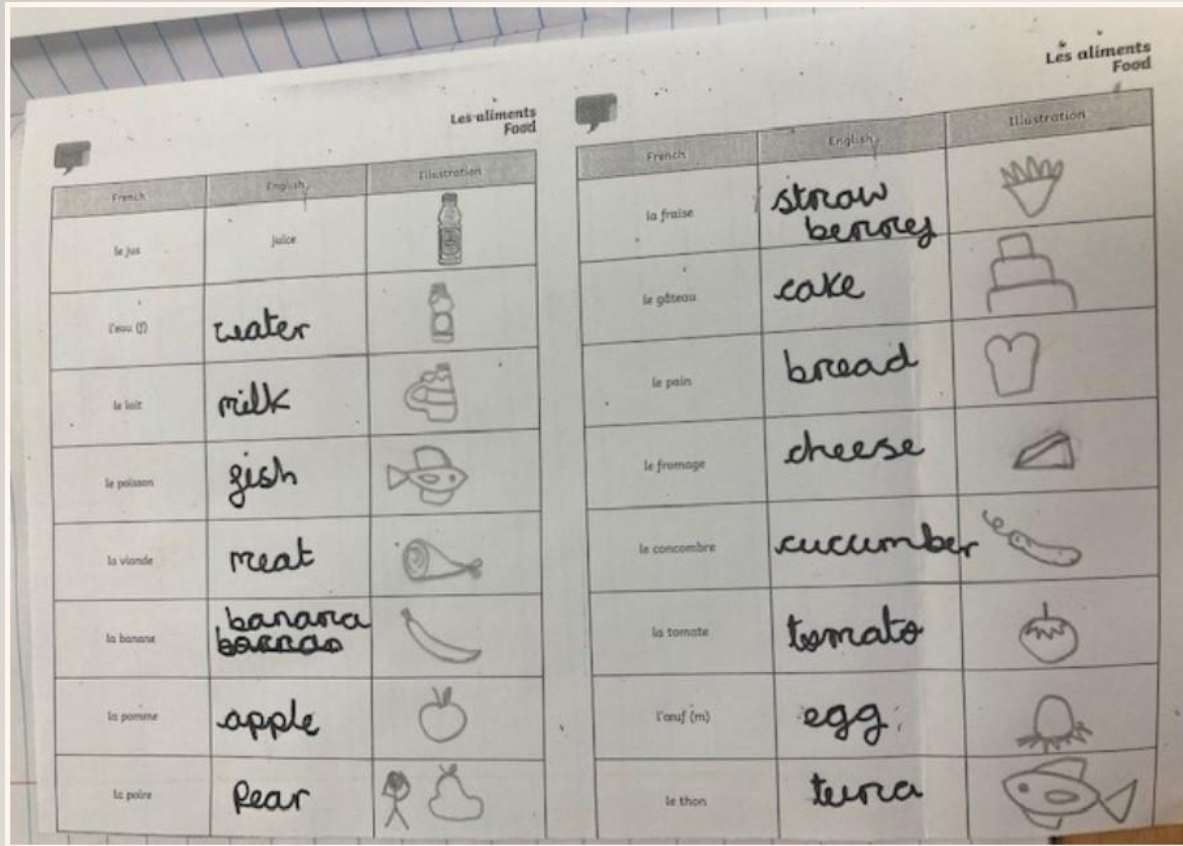 Les aliments
Food
French English Illustration
le jus juice
l'eau (f) water
le lait milk
le poisson fish
la viande meat
la banane banana
la pomme apple
la poire Pear
Les aliments
Food
French English Illustration
la fraise straw
berries
le gâteau cake
le pain bread
le fromage cheese
le concombre cucumber
la tomate tomato
l'œuf (m) egg
le thon tuna